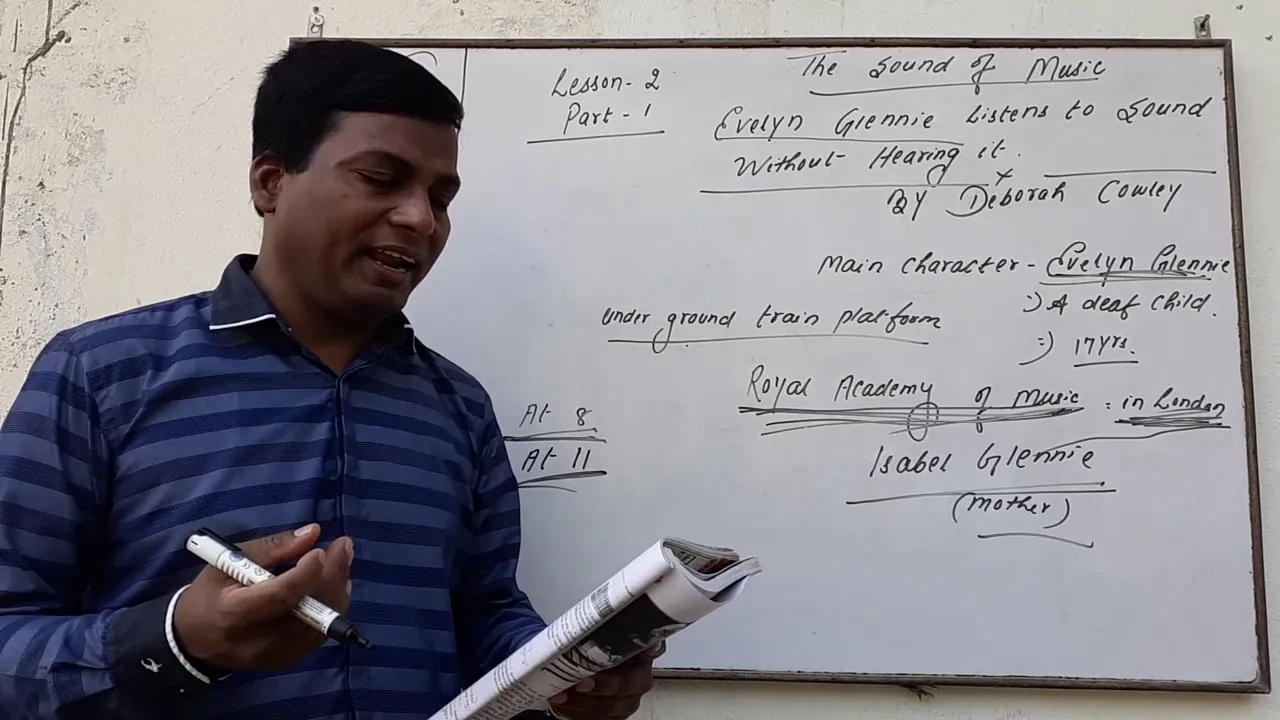 Lesson-2
Part-1
The Sound of Music
Evelyn Glennie Listens to Sound
Without Hearing it.
BY Deborah Cowley
Main Character - Evelyn Glennie
:) A deaf Child.
:) 17 yrs.
under ground train platform
Royal Academy of Music : in London
At 8
At 11
Isabel Glennie
(Mother)